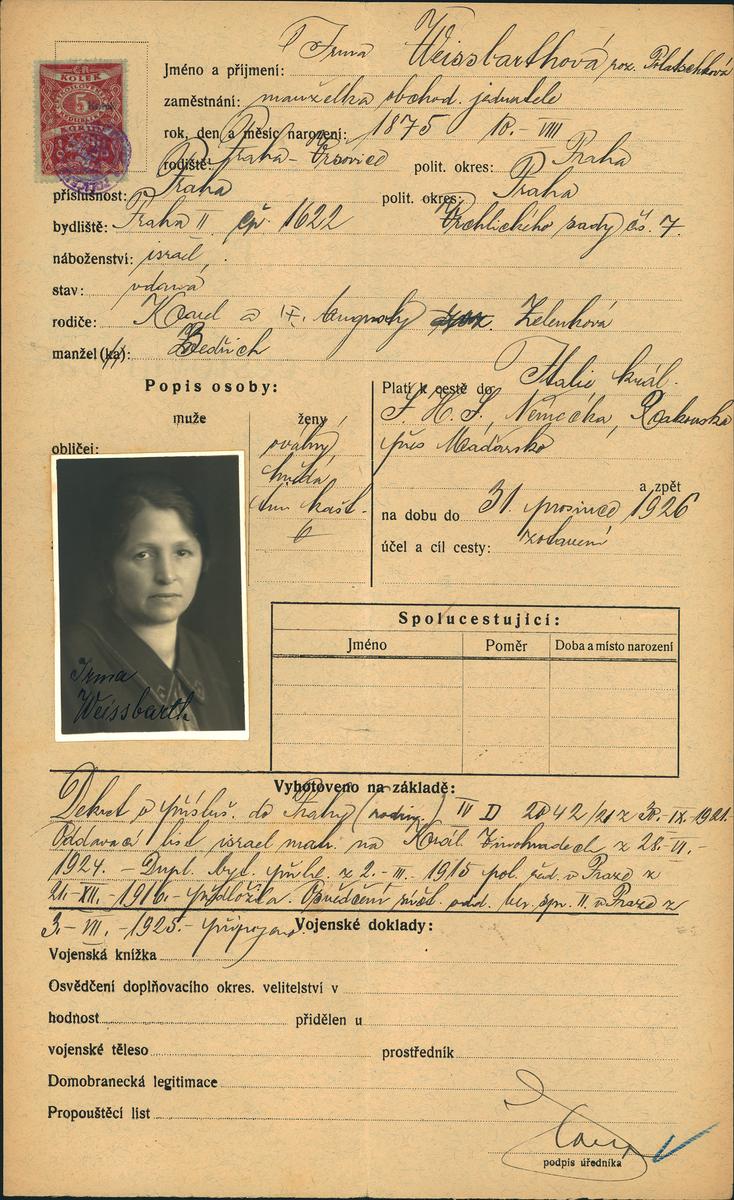 Jméno a příjmení: Irma Weissbarthová roz. Polatschková
zaměstnání: manželka obchod. jednatele
rok, den a měsíc narození: 1875 10.-VIII
rodiště: Praha-Vršovice polit. okres: Praha
příslušnost: Praha polit. okres: Praha
bydliště: Praha II čp. 1622 Vrchlického sady čs. 7.
náboženství: israel.
stav: vdaná
rodiče: Karel a Zelenková
manžel (ka): Bedřich
ČR
KOLEK
5
Popis osoby:
muže ženy
obličej: oválný
hnědá
tm. kašt.
Platí k cestě do Italie král.
S. H. S., Německa, Rakouska
přes Maďarsko
a zpět
na dobu do 31. prosince 1926
účel a cíl cesty: zotavení
Irma
Weissbarth
Spolucestující:
Jméno Poměr Doba a místo narození
Vyhotoveno na základě:
Dekret o přísluš. do Prahy (rodin.) IV D 2042/21 z 30.-IX.-1921.
Oddavací list israel. matr. na Král. Vinohradech z 28.-VI.-
1924. - Dupl. byt. přihl. z 2.-III.-1915 pol. řed. v Praze z
21.-XII.-1916. předložila. Osvědčení v Praze z
3.-VII.-1925.- připojeno.
Vojenské doklady:
Vojenská knížka
Osvědčení doplňovacího okres. velitelství v
hodnost přidělen u
vojenské těleso prostředník
Domobranecká legitimace
Propouštěcí list
podpis úředníka